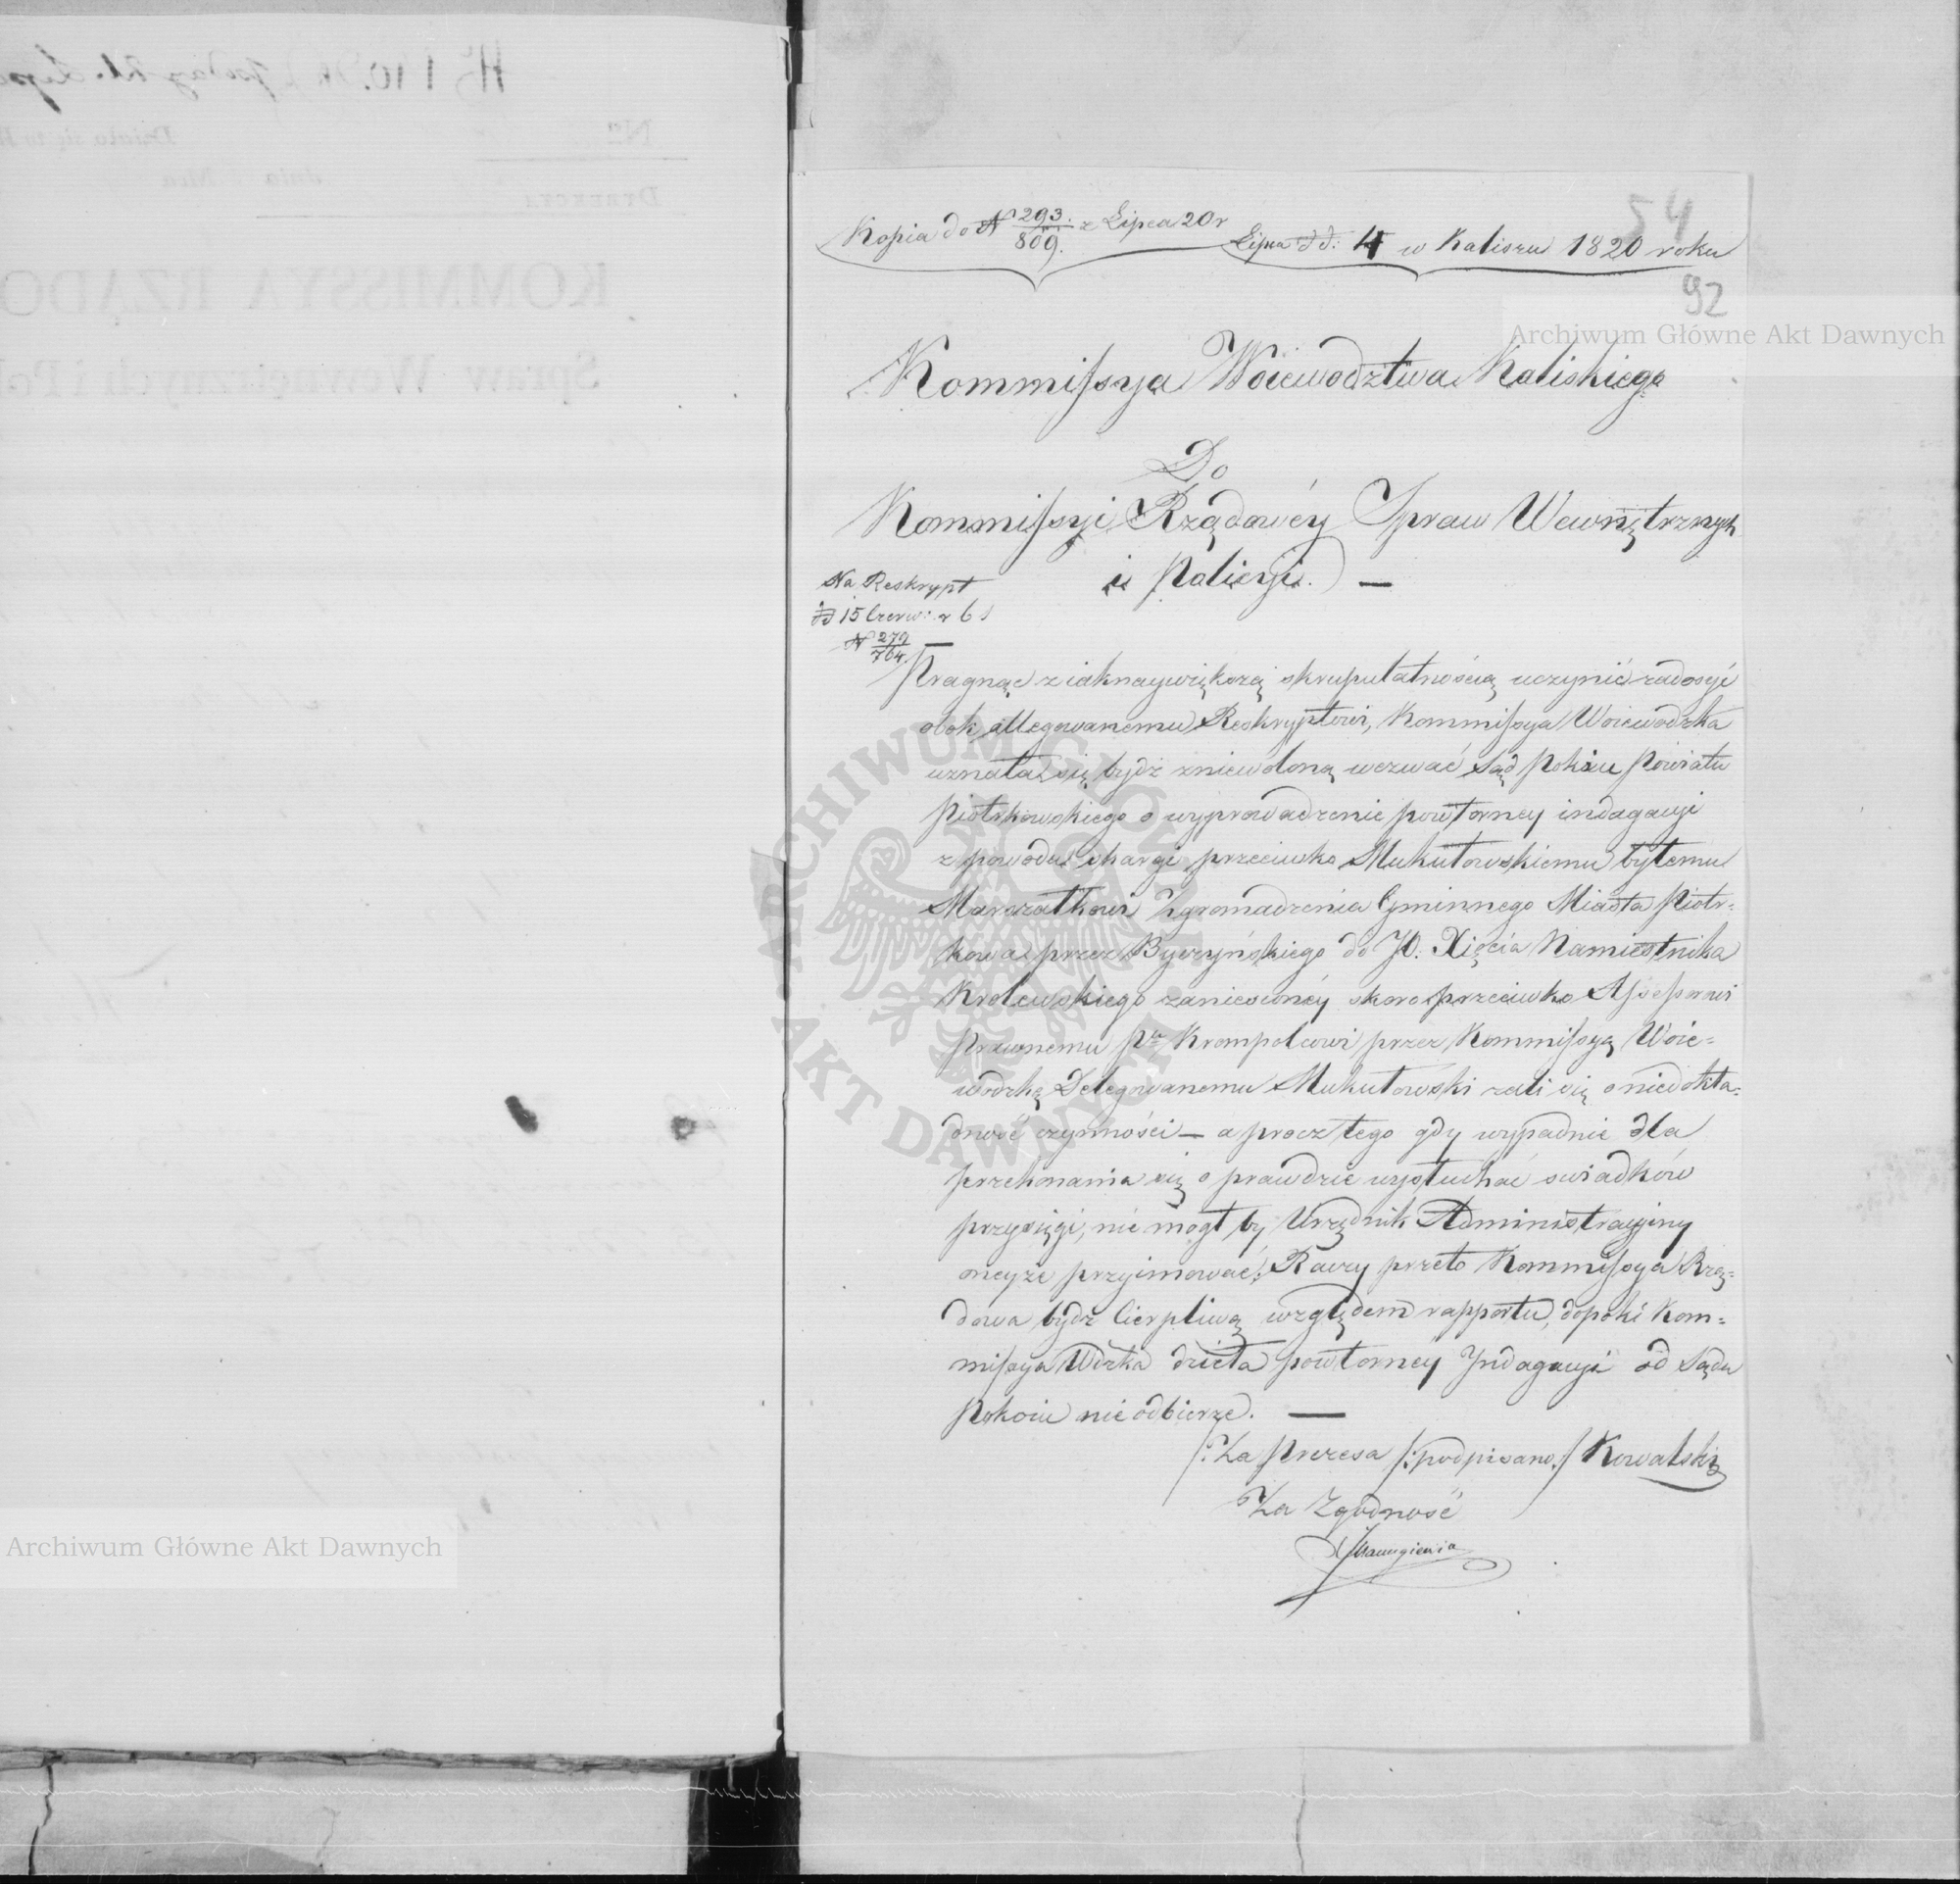 54
Kopia do N 293./809. z Lipca 20 r
Lipca d d: 4 w Kaliszu 1820 roku
92
Archiwum Główne Akt Dawnych
Kommissya Woiewodztwa Kaliskiego
Do
Kommissyi Rządowéy Spraw Wewnętrznych
i Policyi. —
Na Reskrypt
dd 15 Czerw: r b
N 279/764.
Pragnąc z iaknaywiększą skrupulatnością uczynić zadosyć
obok allegowanemu Reskryptowi, Kommissya Woiewodzka
uznała się bydź zniewoloną wezwać Sąd Pokoiu Powiatu
Piotrkowskiego o wyprowadzenie powtorney indagacyi
z powodu skargi przeciwko Mukułowskiemu byłemu
Marszałkowi Zgromadzenia Gminnego Miasta Piotr=
kowa przez Byczyńskiego do JO. Xięcia Namiestnika
Krolewskiego zaniesionéy skoro przeciwko Assessorowi
Prawnemu Pu Krompolcowi przez Kommissyą Woie=
wodzką Delegowanemu Mukułowski żali się o niedokła=
dność czynności — a procz tego gdy wypadnie dla
przekonania się o prawdzie wysłuchać swiadków
przysięgi, nie mogł by Urzędnik Administracyiny
oneyże przyimować; Raczy przeto Kommissya Rzą=
dowa bydź Cierpliwą względem rapportu, dopoki Kom=
missya Wdzka dzieła powtornéy Jndagacyi od Sądu
Pokoiu nie odbierze. —
/: Za Prezesa /: podpisano :/ Kowalski
Za Zgodność
ARCHIWUM GŁÓWNE AKT DAWNYCH
Archiwum Główne Akt Dawnych
KOMMISSYA RZĄDO
Spraw Wewnętrznych i Pol